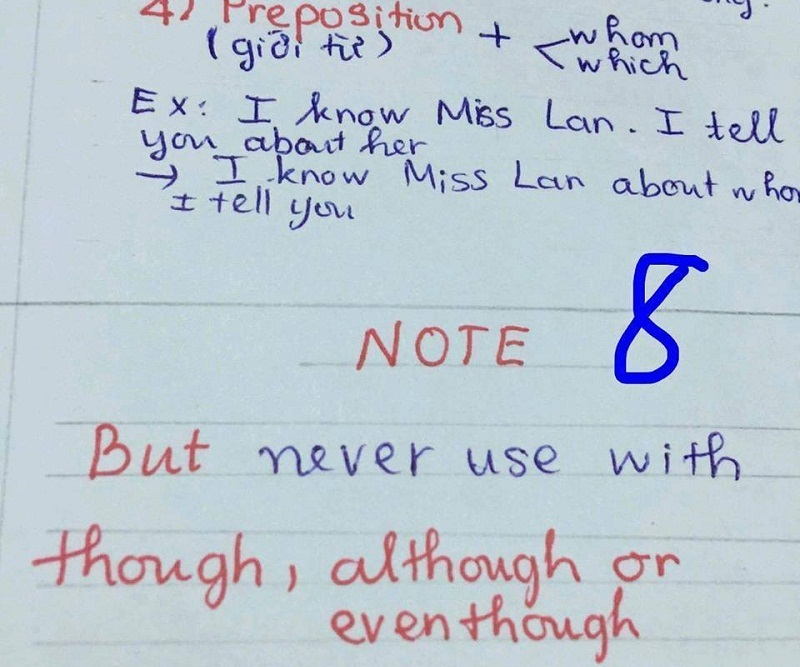 4) Preposition + < whom
(giới từ) which
Ex: I know Miss Lan. I tell
you about her
→ I know Miss Lan about
I tell you
NOTE 8
But never use with
though, although or
eventhough